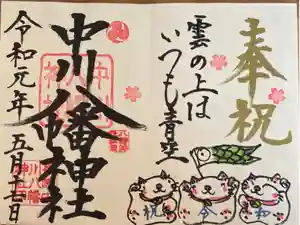 奉祝
雲の上は
いつも青空
祝
令
和
中川八幡神社
令和元年
五月十七日